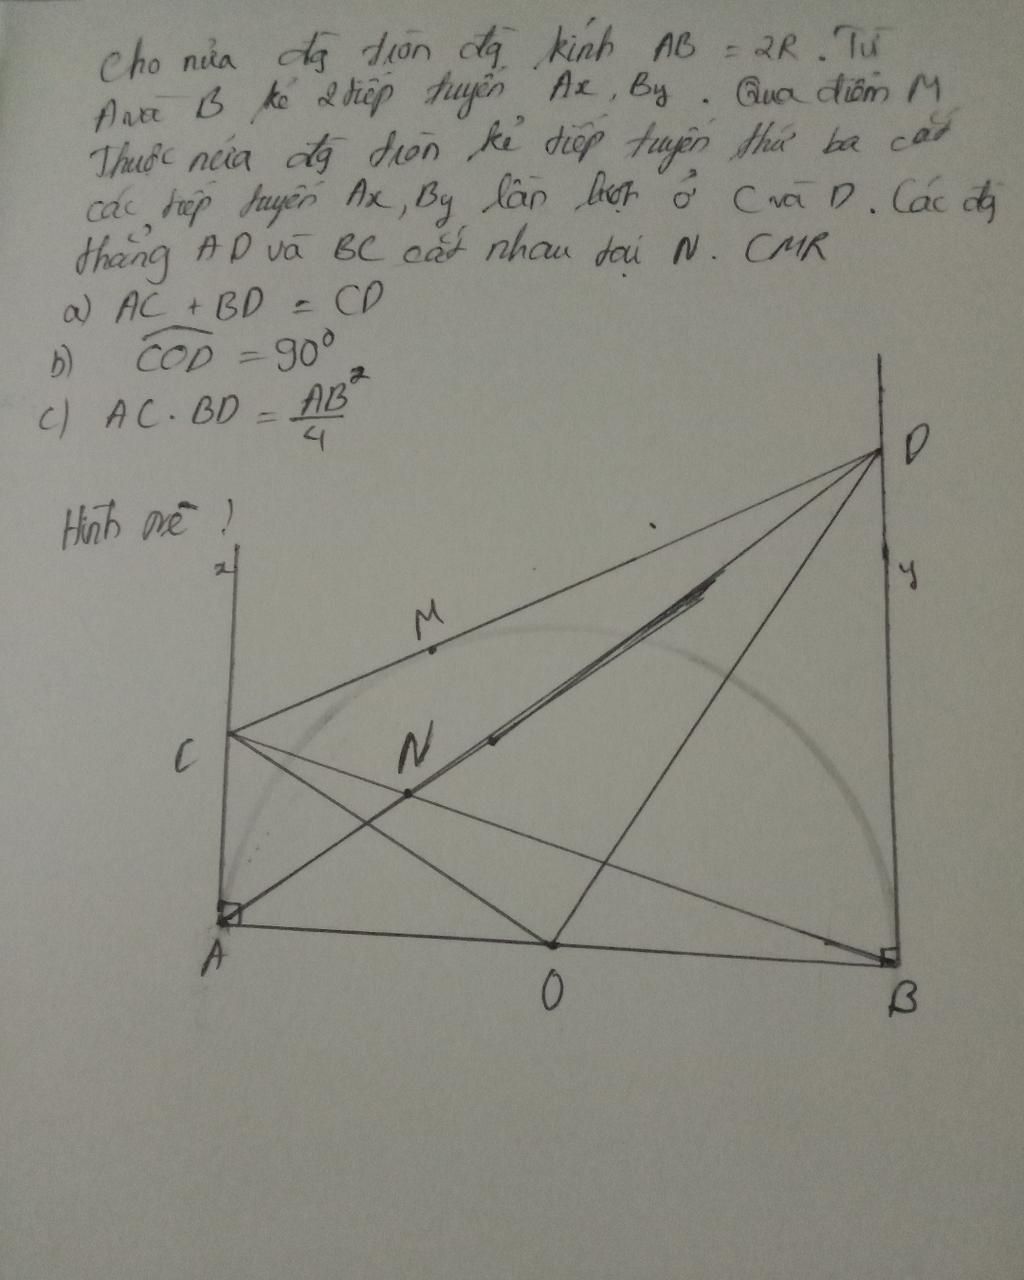 Cho nửa đg tròn đg kính AB = 2R. Từ
A và B kẻ 2 tiếp tuyến Ax, By. Qua điểm M
Thuộc nửa đg tròn kẻ tiếp tuyến thứ ba cắt
các tiếp tuyến Ax, By lần lượt ở C và D. Các đg
thẳng AD và BC cắt nhau tại N. CMR
a) AC + BD = CD
b) \widehat{COD} = 90⁰
c) AC . BD = \frac{AB²}{4}
Hình vẽ !
D
x
y
M
C
N
A
O
B